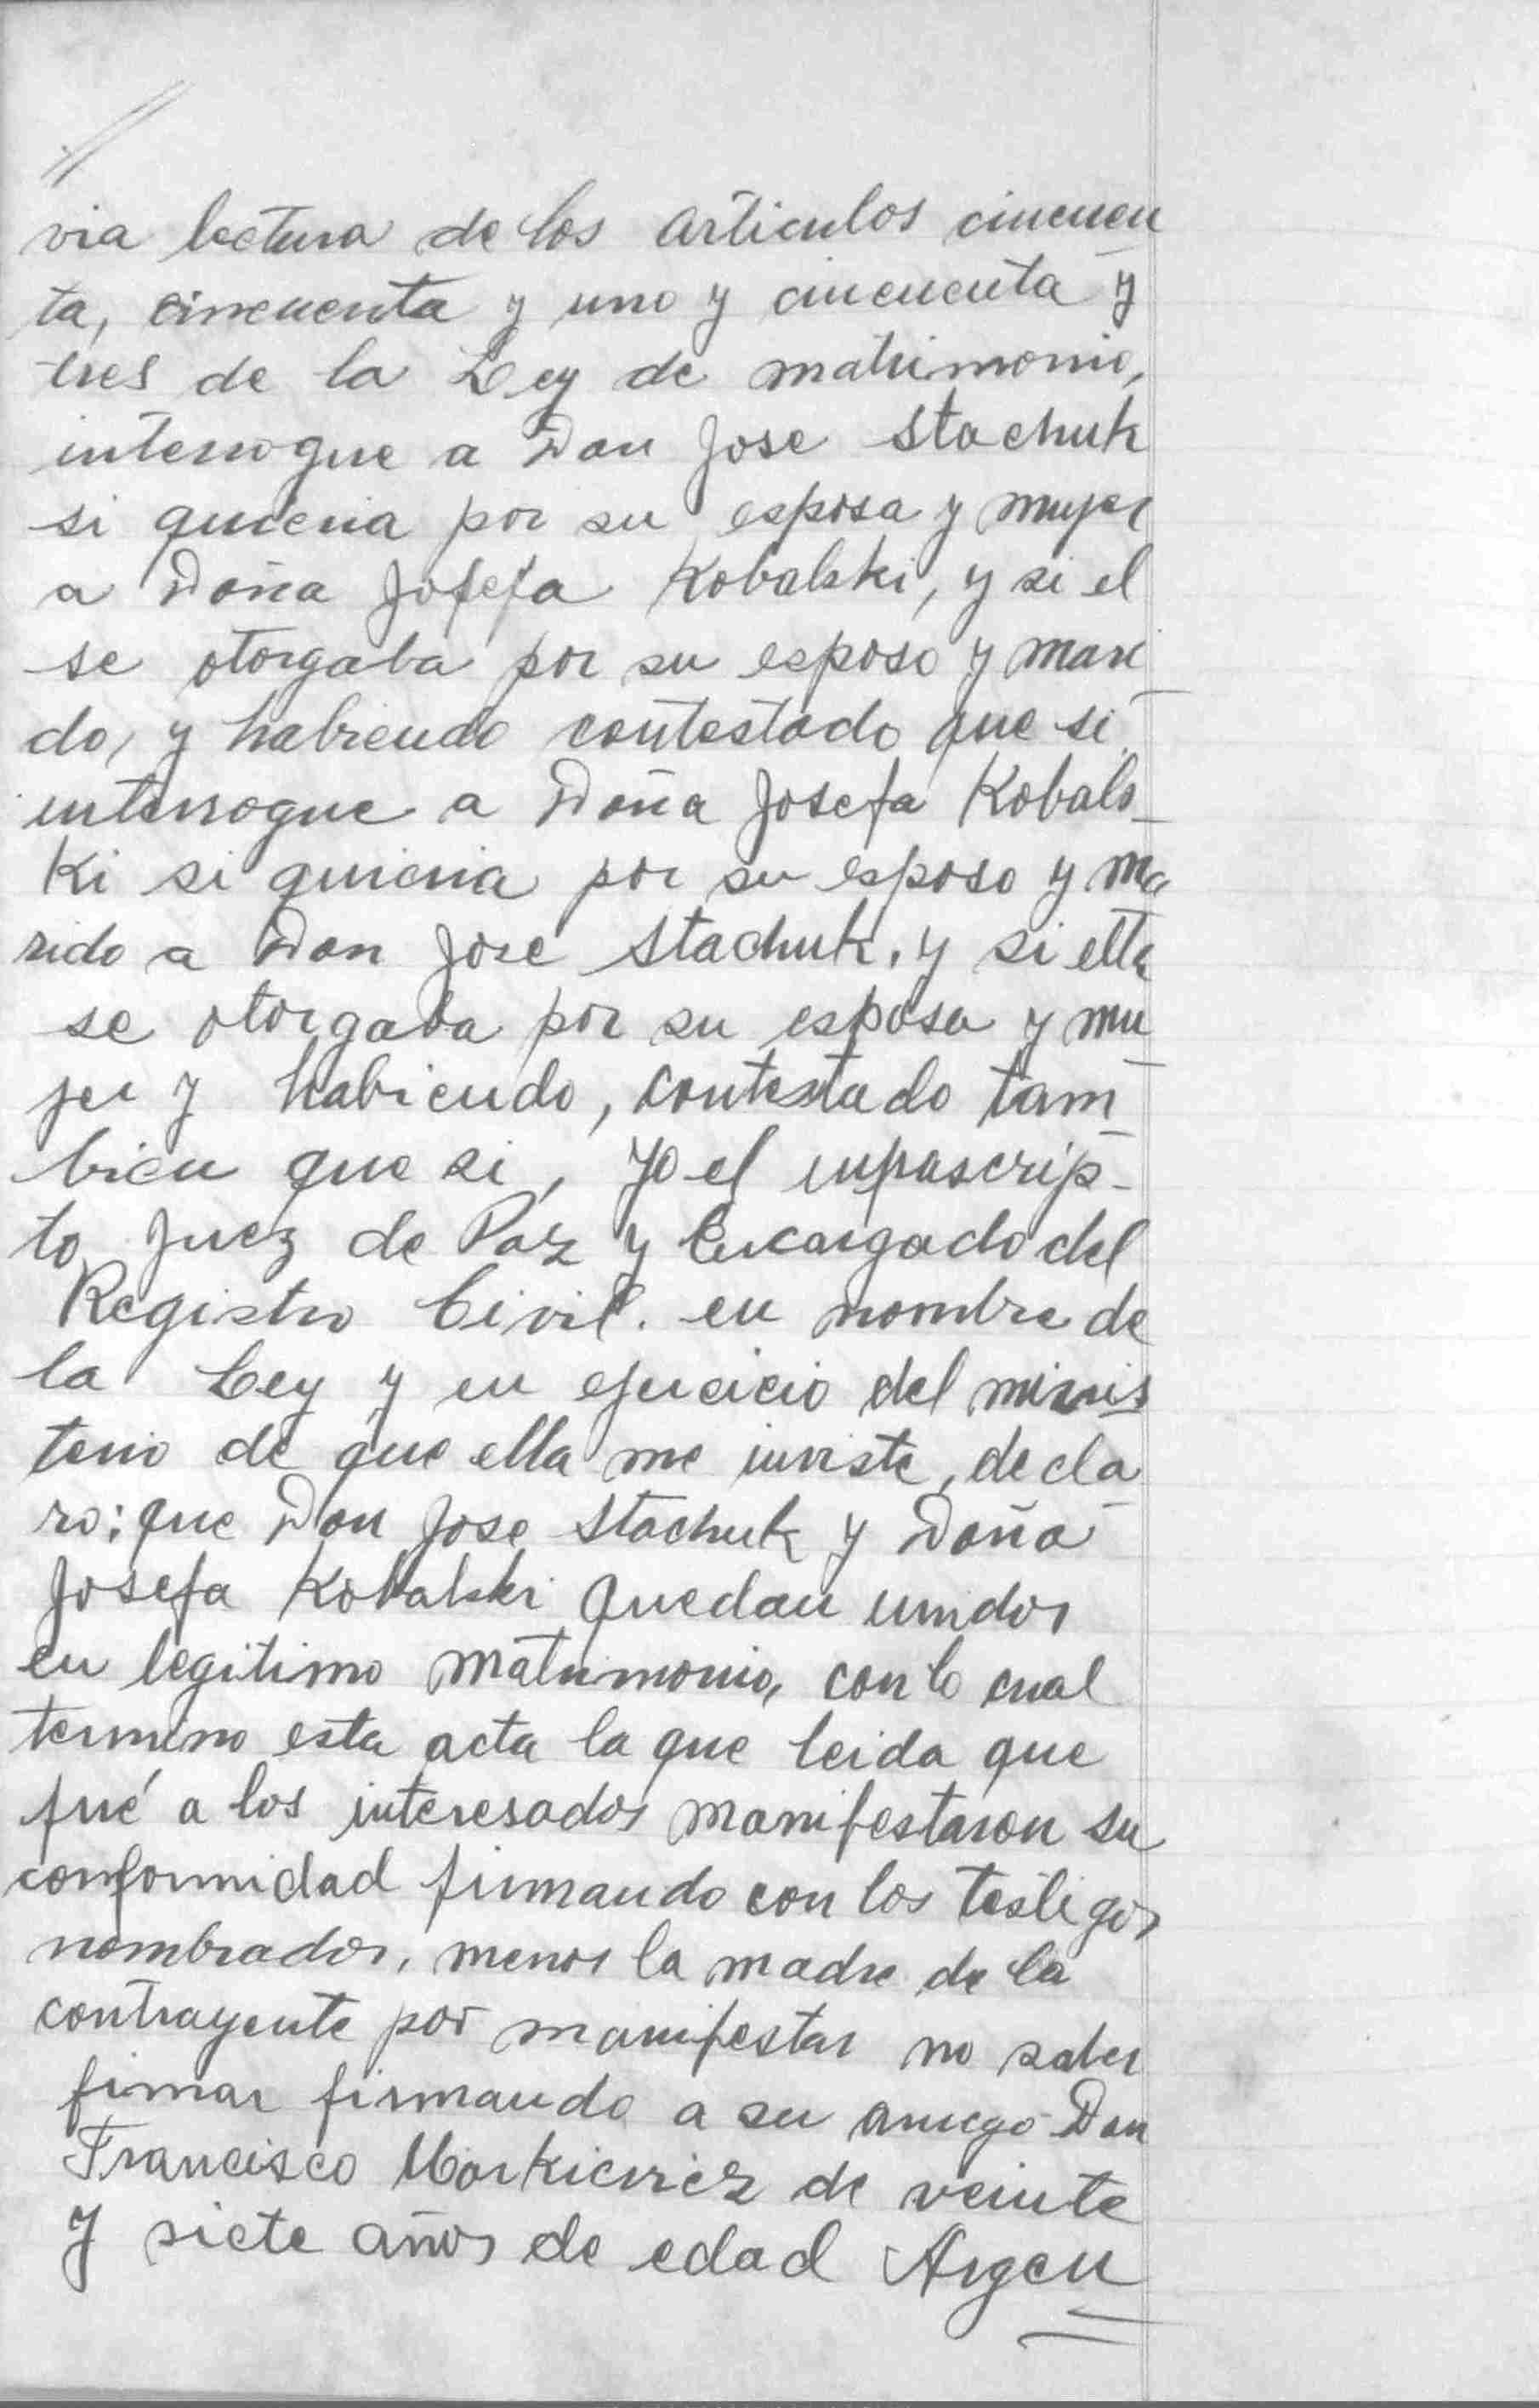 via lectura de los articulos cincuen
ta, cincuenta y uno y cincuenta y
tres de la Ley de matrimonio,
interrogue a Don Jose Stachuk
si queria por su esposa y mujer
a Doña Josefa Kobalski, y si el
se otorgaba por su esposo y mari
do, y habiendo contestado que si
interrogue a Doña Josefa Kobals_
ki si queria por su esposo y ma
rido a Don Jose Stachuk, y si ella
se otorgaba por su esposa y mu
jer y habiendo, contestado tam
bien que si, Yo el infrascrip_
to Juez de Paz y Encargado del
Registro Civil. en nombre de
la Ley y en ejercicio del minis
terio de que ella me inviste, decla
ro: que Don Jose Stachuk y Doña
Josefa Kobalski quedan unidos
en legitimo matrimonio, con lo cual
termino esta acta la que leida que
fué a los interesados manifestaron su
conformidad firmando con los testigos
nombrados, menos la madre de la
contrayente por manifestar no saber
firmar firmando a su amego Don
Francisco Markievicz de veinte
y siete años de edad Argen